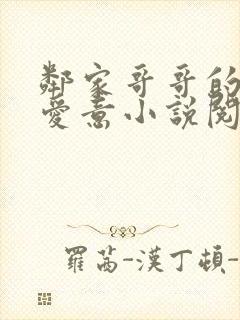 鄰家哥哥的
愛意小說閱
羅茜-漢丁頓-